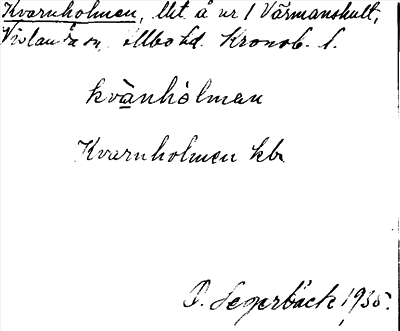 Kvarnholmen, llet å nr 1 Värmanshult,
Vislanda sn, Allbo hd. Kronob. l.
kvànhólman
Kvarnholmen kb
P. Segerbäck 1935.